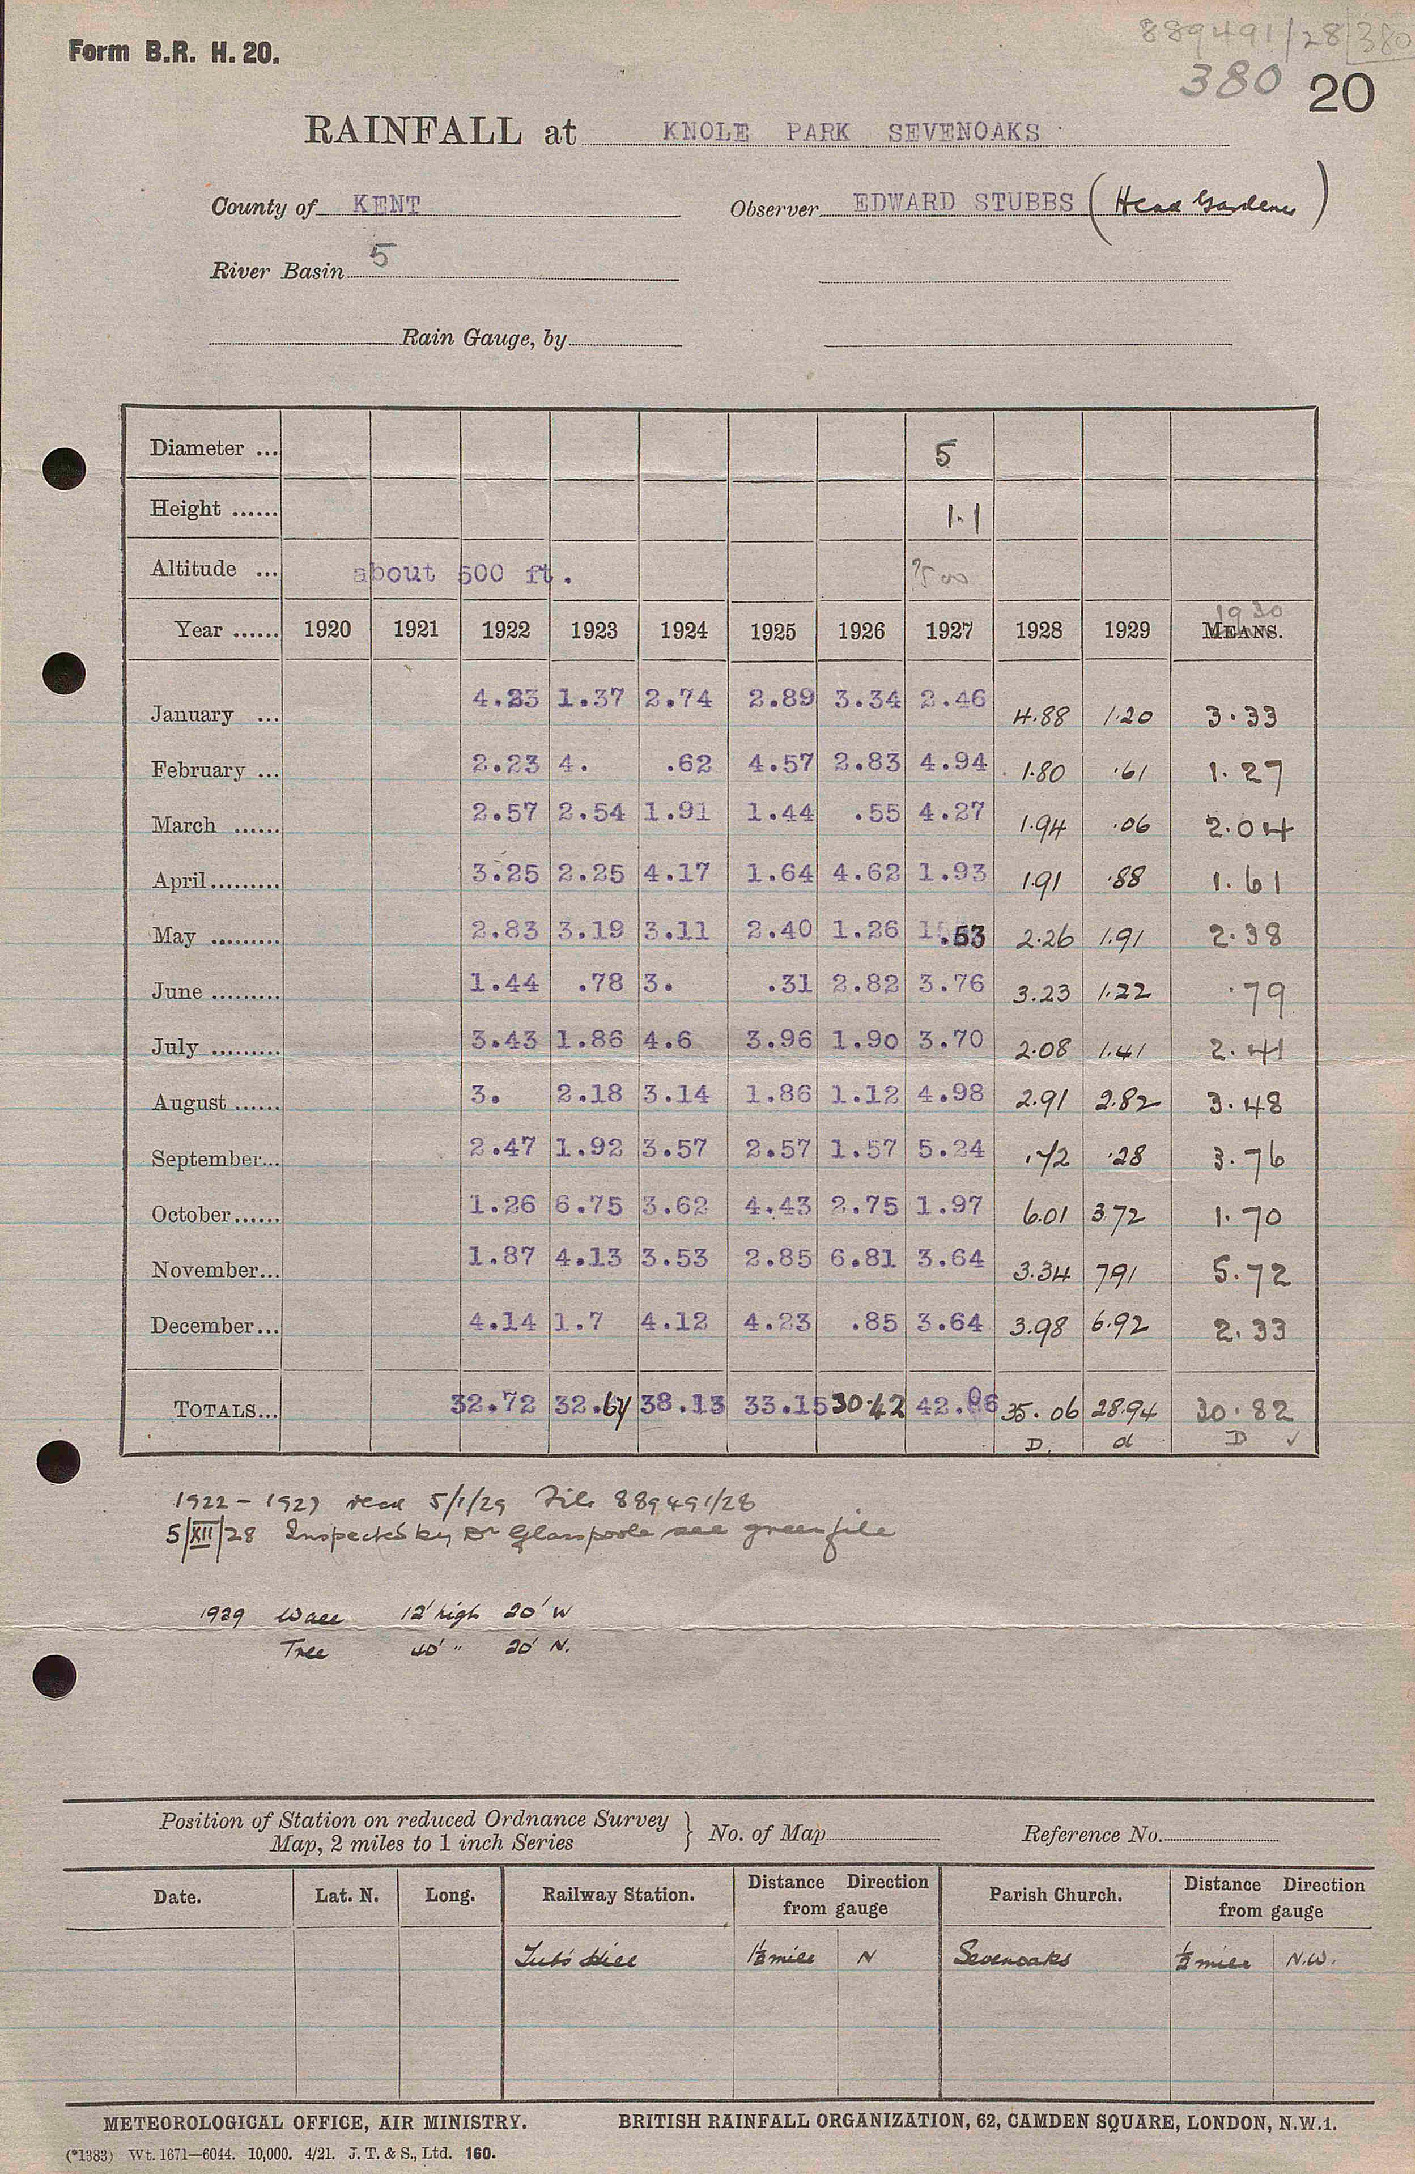 889491/28/380
Form B.R. H. 20.
380 20
RAINFALL at KNOLE PARK SEVENOAKS
County of KENT Observer EDWARD STUBBS (Head Gardener)
River Basin 5
Rain Gauge, by
Diameter ... 5
Height ...... 1.1
Altitude ... about 500 ft. ?500
1930
Year ...... 1920 1921 1922 1923 1924 1925 1926 1927 1928 1929 MEANS.
January ... 4.23 1.37 2.74 2.89 3.34 2.46 4.88 1.20 3.33
February ... 2.23 4. .62 4.57 2.83 4.94 1.80 .61 1.27
March ...... 2.57 2.54 1.91 1.44 .55 4.27 1.94 .06 2.04
April......... 3.25 2.25 4.17 1.64 4.62 1.93 1.91 .88 1.61
May ......... 2.83 3.19 3.11 2.40 1.26 1.53 2.26 1.91 2.38
June ......... 1.44 .78 3. .31 2.82 3.76 3.23 1.22 .79
July ......... 3.43 1.86 4.6 3.96 1.90 3.70 2.08 1.41 2.41
August ...... 3. 2.18 3.14 1.86 1.12 4.98 2.91 2.82 3.48
September... 2.47 1.92 3.57 2.57 1.57 5.24 .72 .28 3.76
October...... 1.26 6.75 3.62 4.43 2.75 1.97 6.01 3.72 1.70
November... 1.87 4.13 3.53 2.85 6.81 3.64 3.34 7.91 5.72
December... 4.14 1.7 4.12 4.23 .85 3.64 3.98 6.92 2.33
TOTALS... 32.72 32.67 38.13 33.15 30.42 42.06 35.06 28.94 30.82
D. d D ✓
1922 - 1927 recd 5/1/29 File 889491/28
5/XII/28 Inspected by Dr Glasspoole see green file
1929 Wall 12' high 20' W
Tree 40' " 20' N.
Position of Station on reduced Ordnance Survey
Map, 2 miles to 1 inch Series } No. of Map Reference No.
Date. Lat. N. Long. Railway Station. Distance Direction from gauge Parish Church. Distance Direction from gauge
Tubs Hill 1½ mile N Sevenoaks ½ mile N.W.
METEOROLOGICAL OFFICE, AIR MINISTRY. BRITISH RAINFALL ORGANIZATION, 62, CAMDEN SQUARE, LONDON, N.W.1.
(*1383) Wt. 1671—6044. 10,000. 4/21. J. T. & S., Ltd. 160.